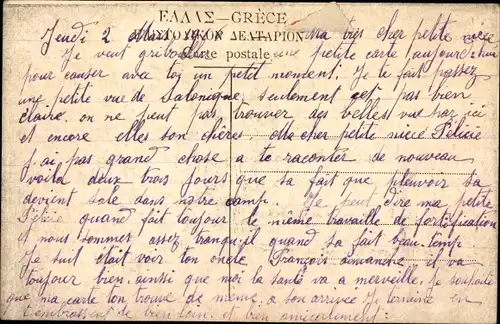 ΕΛΛΑΣ—GRÈCE
Jeudi 2 Ma très cher petite nièce
ΕΠΙΣΤΟΛΙΚΟΝ ΔΕΛΤΑΡΙΟΝ
Carte postale
Je veut une petite carte aujourd'hui
pour causer avec toi un petit moment. Je te fait passez
une petite vue de Salonique, seulement est pas bien
claire, on ne peut pas trouver des belles vue par ici
et encore elles son chères, Ma cher petite nièce Félicie
j'ai pas grand chose a te raconter de nouveau
voila deux trois jours que sa fait que pleuvoir sa
devient sale dans notre camp. Je peut dire ma petite
Félicie quand fait toujour le même travaille de fortification
et nous sommes assez tranquil quand sa fait beau temp
Je suit était voir ton oncle François dimanche il va
toujour bien, ainsi que moi la santé va a merveille, je souhaite
que ma carte ton trouve de même a son arrivée Je termine en
t'embrassent de bien loin, et bien amicalement: